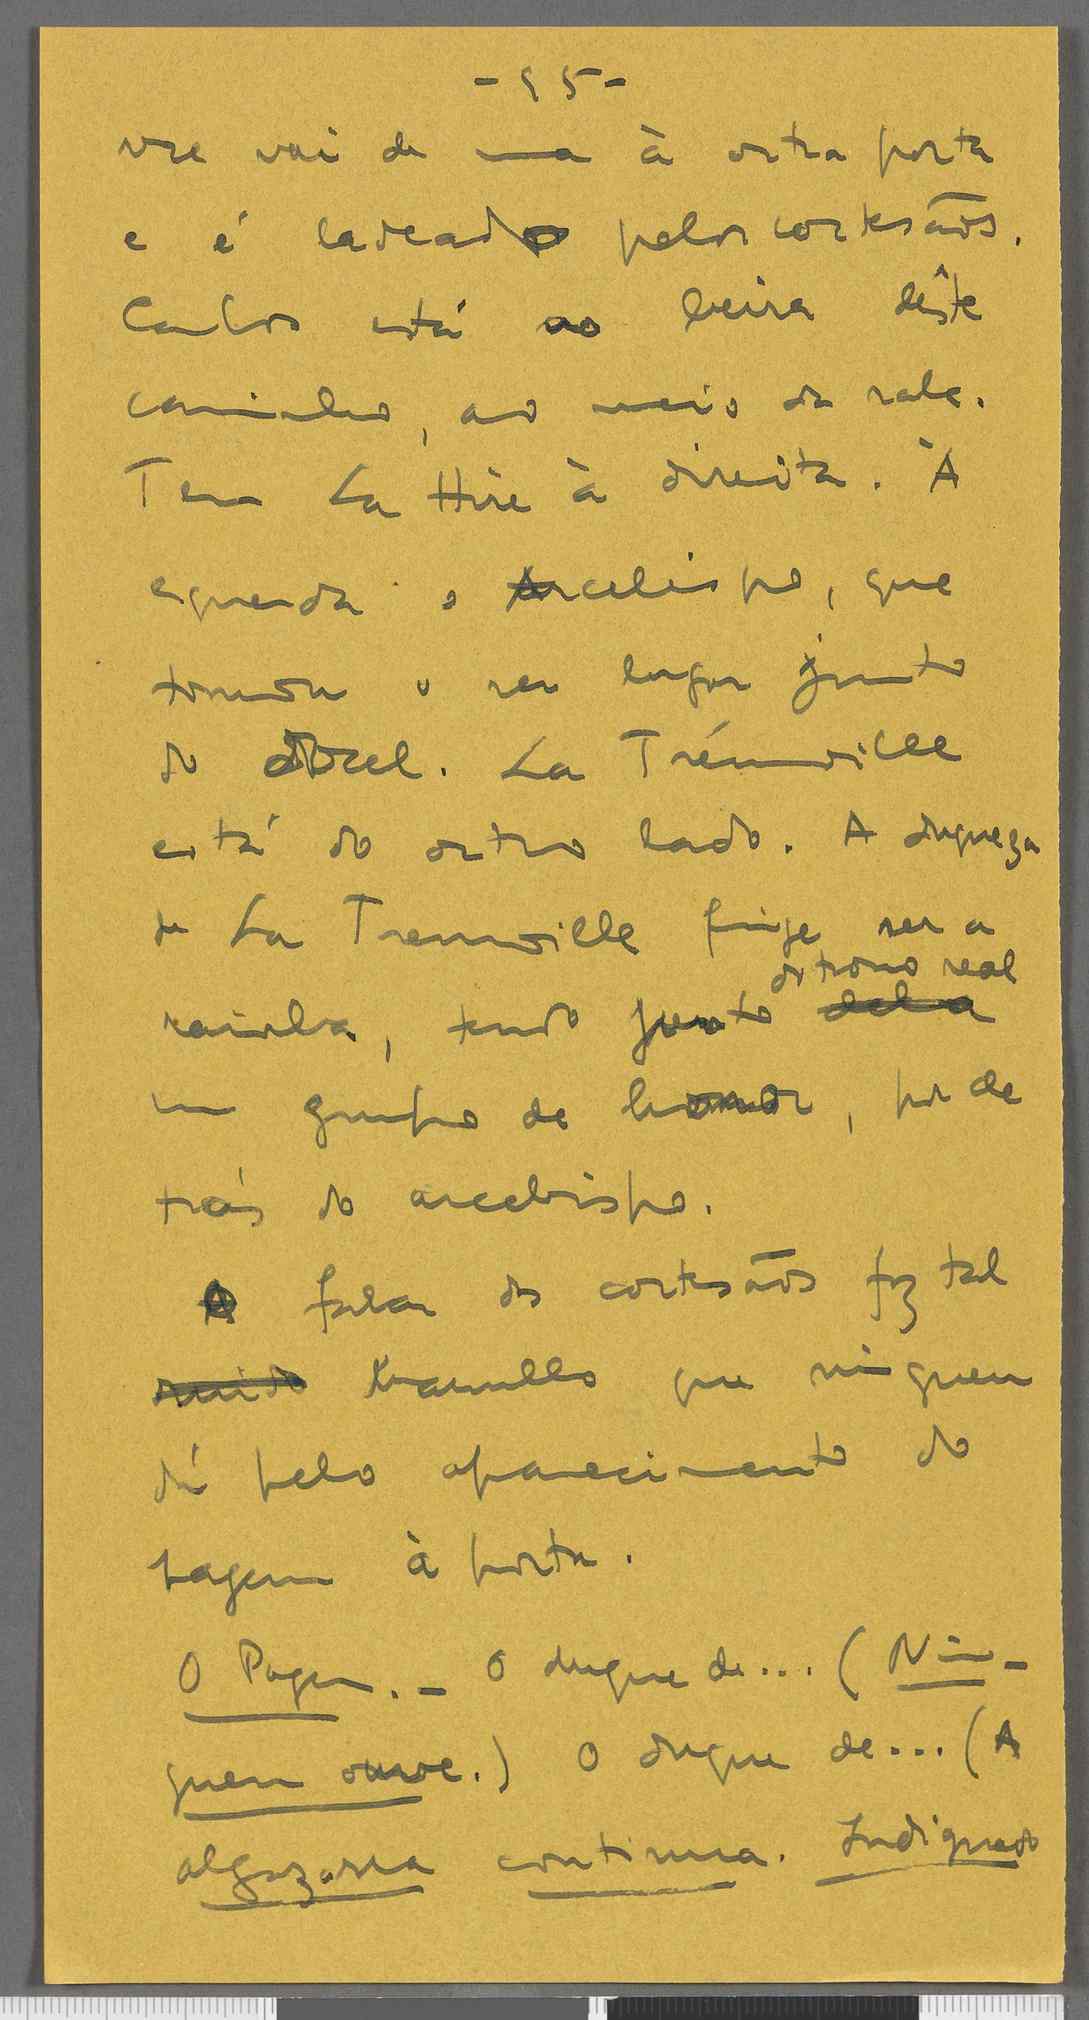 - 55 -
vre vai de uma à outra porta
e é ladeado pelos cortesãos.
Carlos está ao beira dêste
caminho, ao meio da sala.
Tem La Hire à direita. À
esquerda o Arcebispo, que
tomou o seu lugar junto
do dorcel. La Trémoille
está do outro lado. A duqueza
de La Tremoille finge ser a
do trono real
rainha, tendo junto dela
um grupo de honor, por de
trás do arcebispo.
A falar os cortesãos faz tal
ruido barulho que ninguem
dá pelo aparecimento do
pagem à porta.
O Pagem. – O duque de... (Nin-
guem ouve.) O duque de... (A
algazarra continua. Indignado